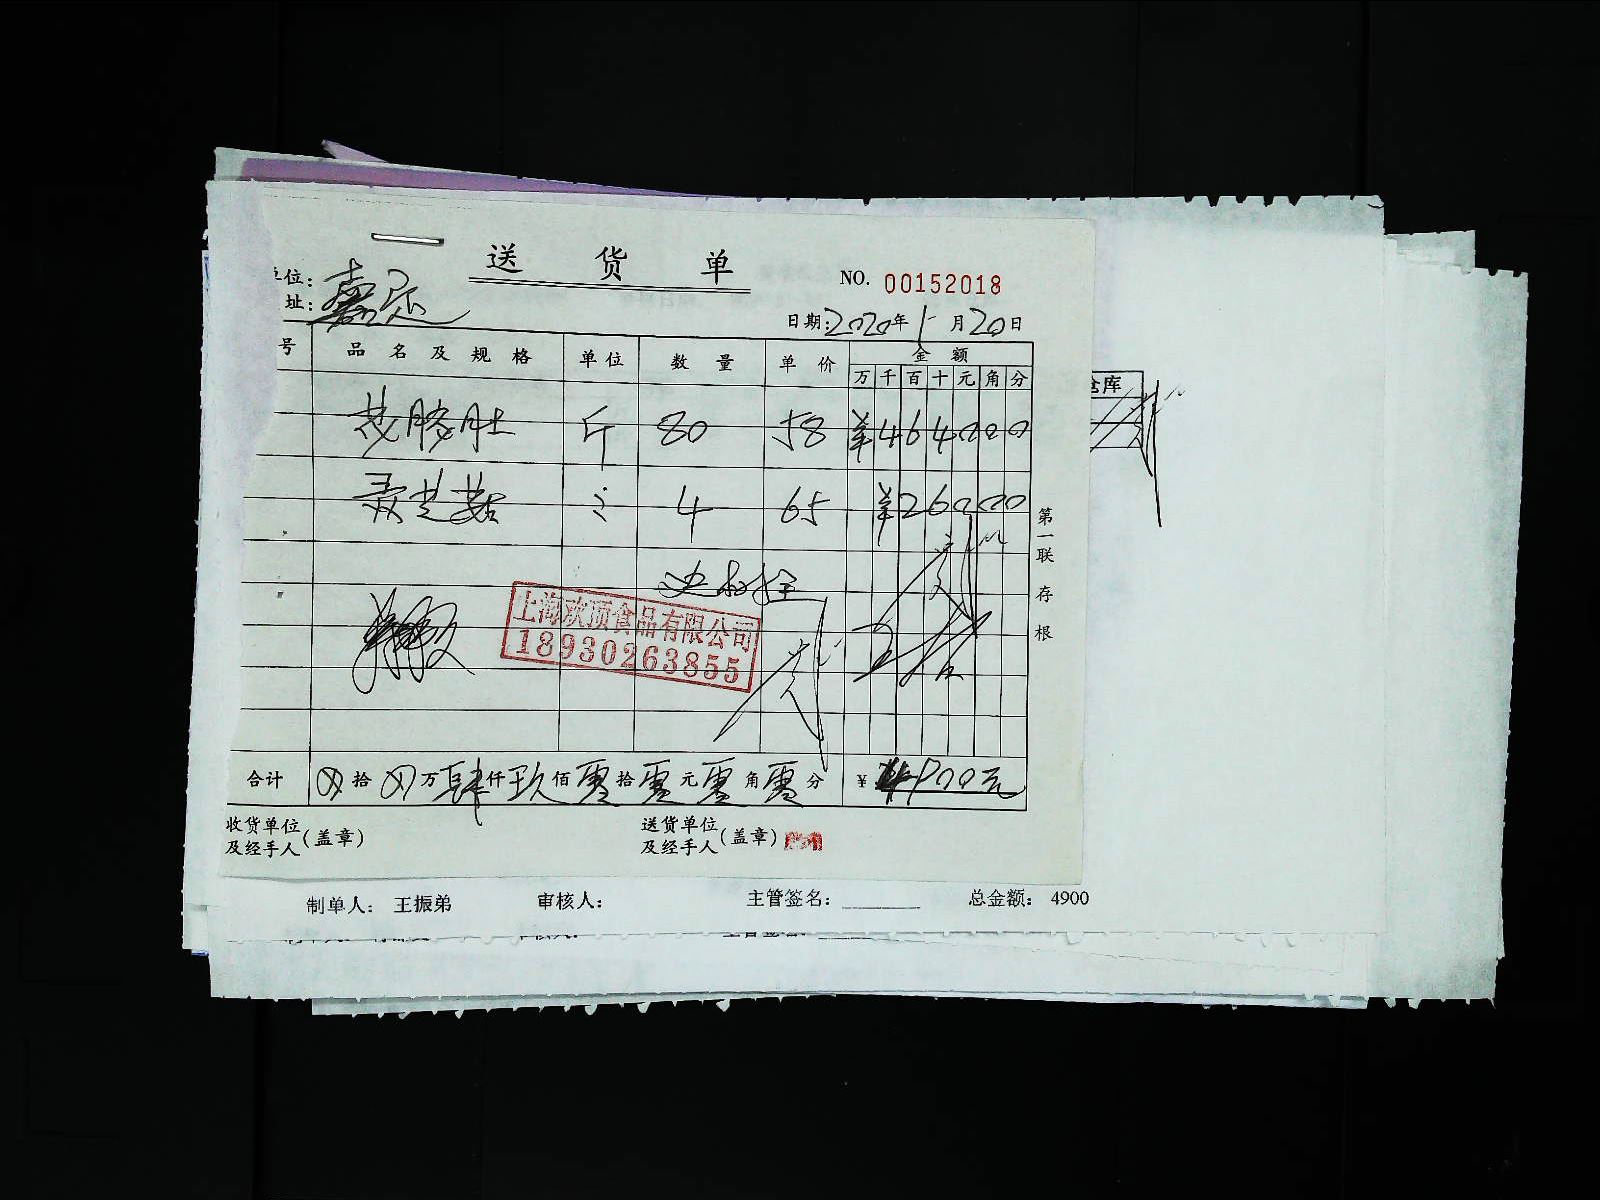 送货单
NO. 00152018
位:
址:
日期:2020年1月20日
号 品名及规格 单位 数量 单价 金额
万千百十元角分
斤 80 58 ¥464000
4 65 ¥26000
上海欢顶食品有限公司
18930263855
第一联 存根
合计 ⊗拾⊗万肆仟玖佰零拾零元零角零分 ¥4900元
收货单位及经手人(盖章)
送货单位及经手人(盖章)
仓库
制单人: 王振弟 审核人: 主管签名: 总金额: 4900